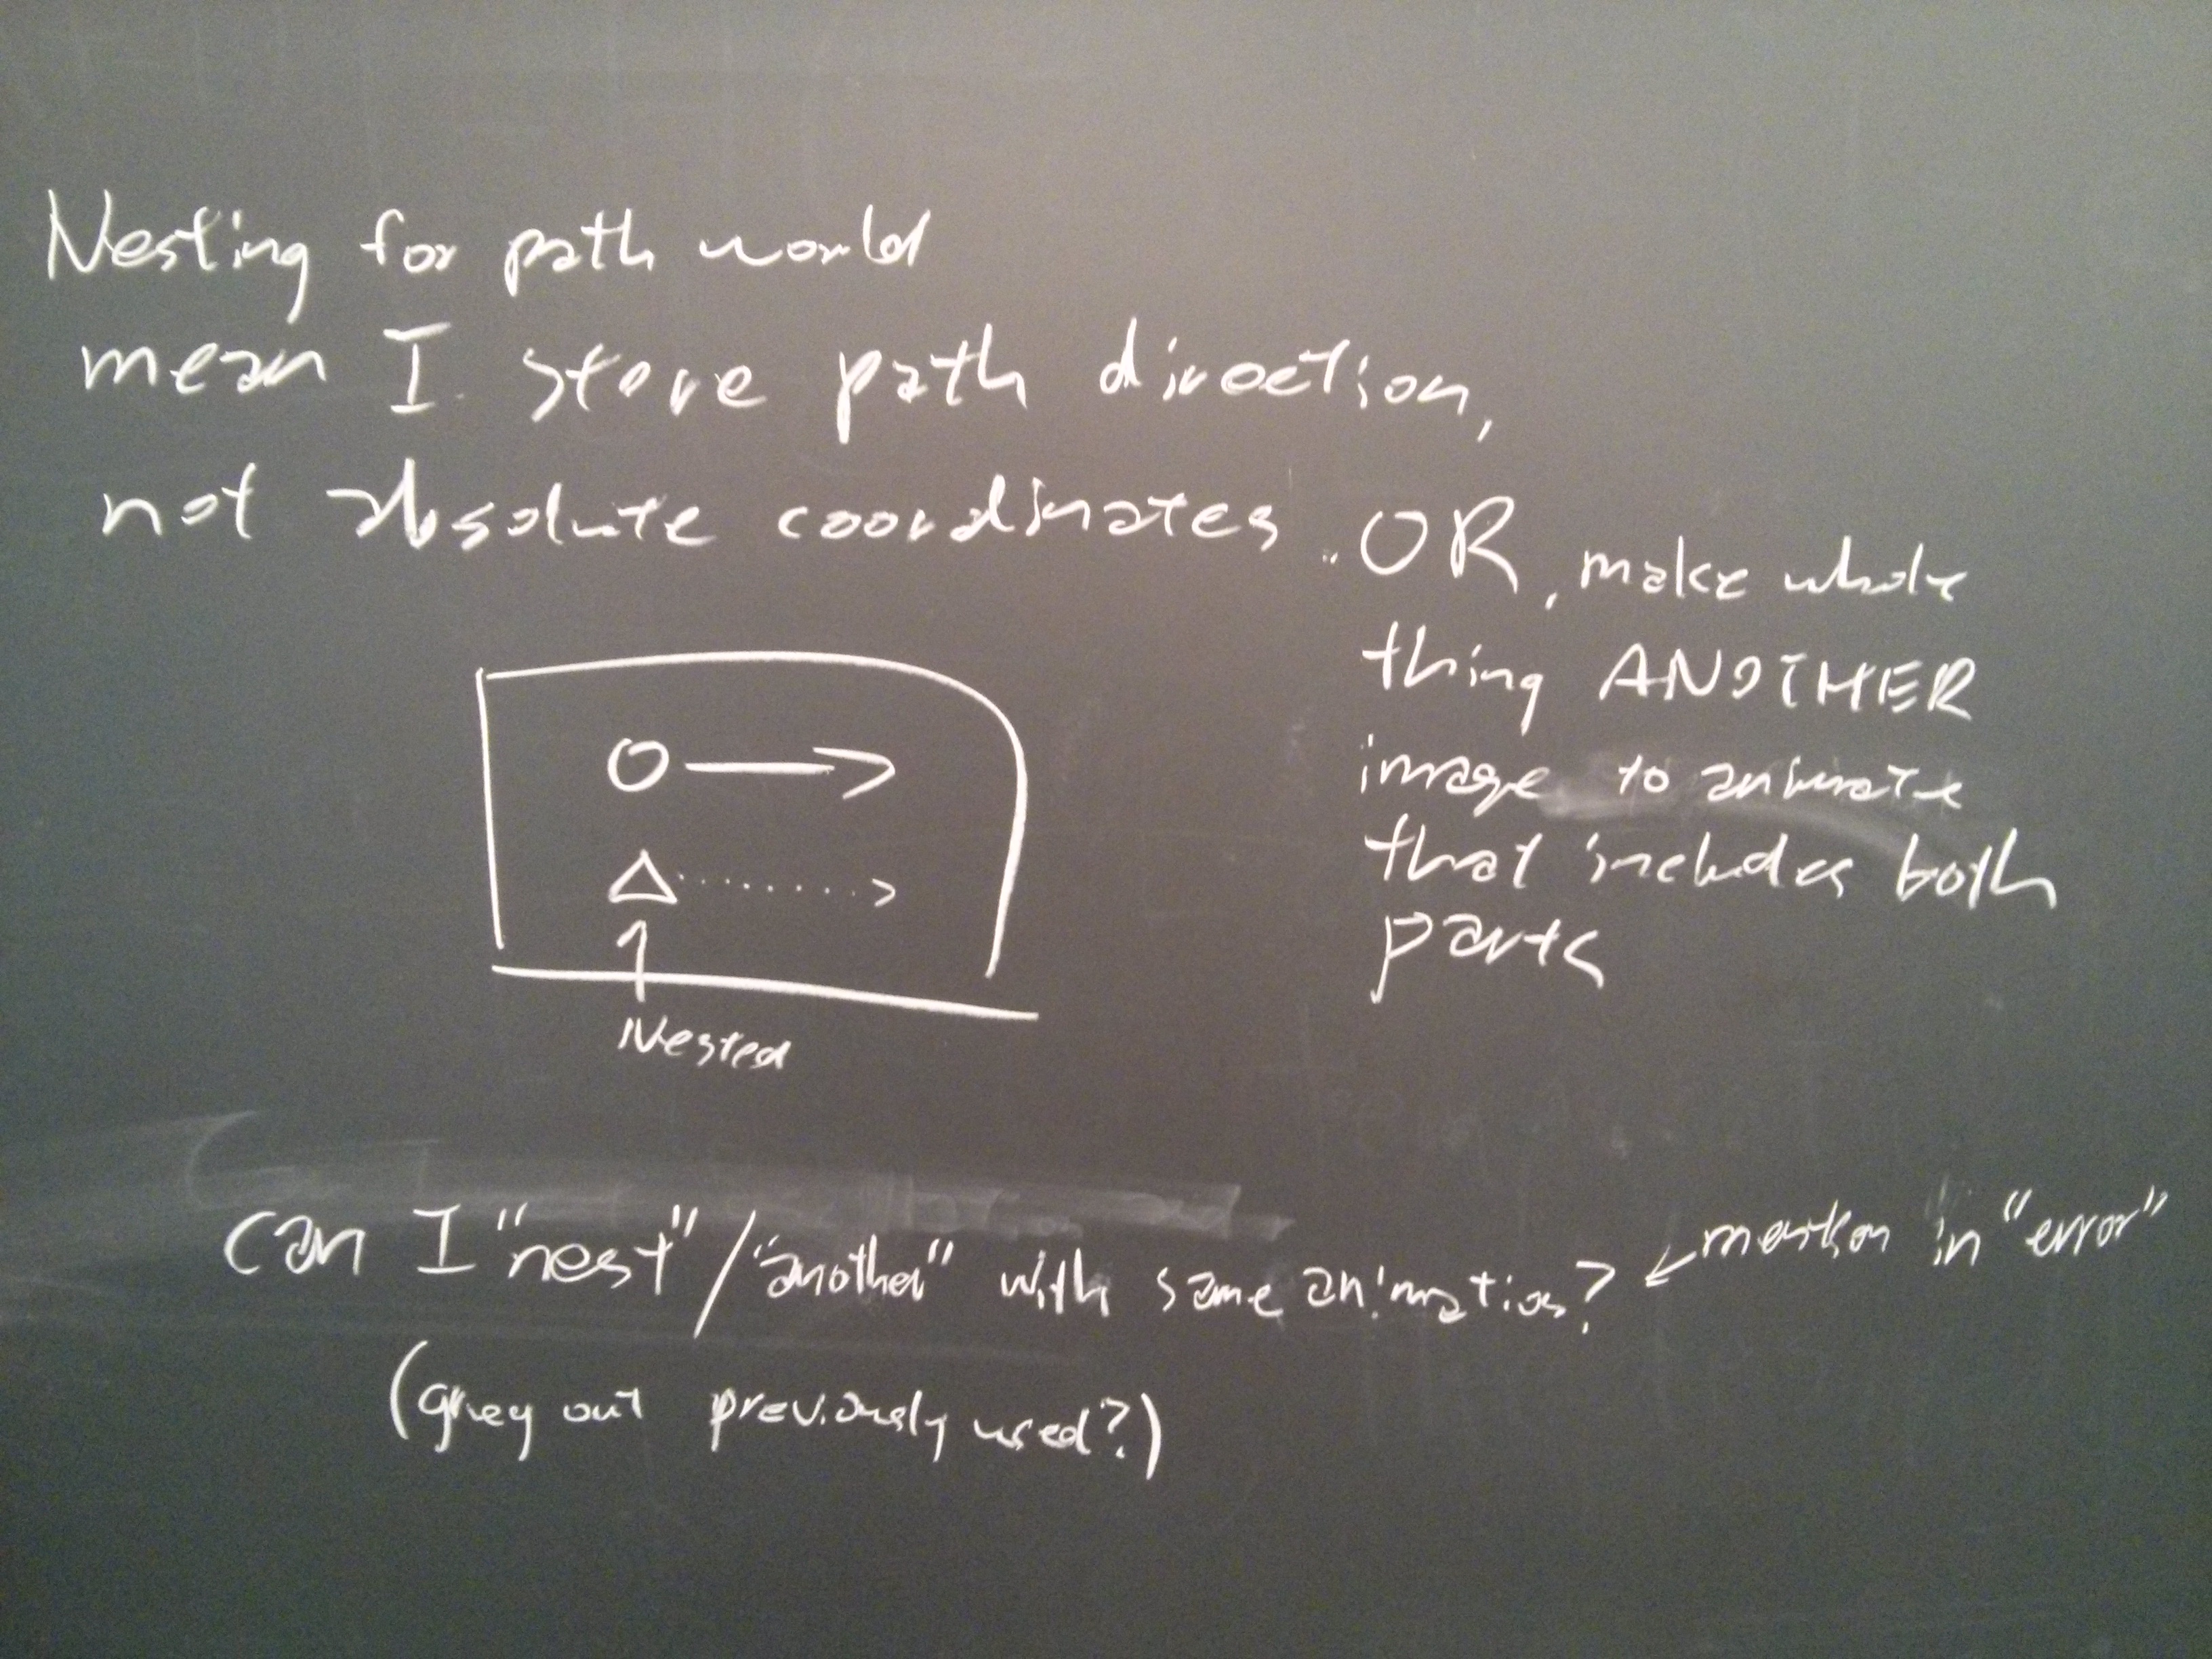 Nesting for path would
mean I store path direction,
not absolute coordinates..
OR, make whole
thing ANOTHER
image to animate
that includes both
parts
Nested
can I "nest"/"another" with same animation?
mention in "error"
(grey out previously used?)